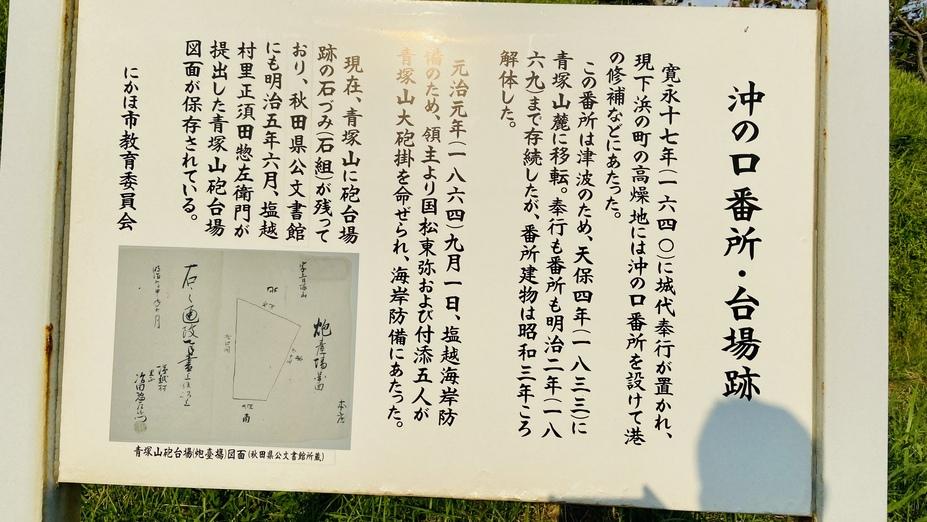 沖の口番所・台場跡
寛永十七年(一六四〇)に城代奉行が置かれ、
現下浜の町の高燥地には沖の口番所を設けて港
の修補などにあたった。
この番所は津波のため、天保四年(一八三三)に
青塚山麓に移転。奉行も番所も明治二年(一八
六九)まで存続したが、番所建物は昭和三年ころ
解体した。
元治元年(一八六四)九月一日、塩越海岸防
備のため、領主より国松東弥および付添五人が
青塚山大砲掛を命ぜられ、海岸防備にあたった。
現在、青塚山に砲台場
跡の石づみ(石組)が残って
おり、秋田県公文書館
にも明治五年六月、塩越
村里正須田惣左衛門が
提出した青塚山砲台場
図面が保存されている。
にかほ市教育委員会
南
青塚山砲台場(炮臺場)図面(秋田県公文書館所蔵)